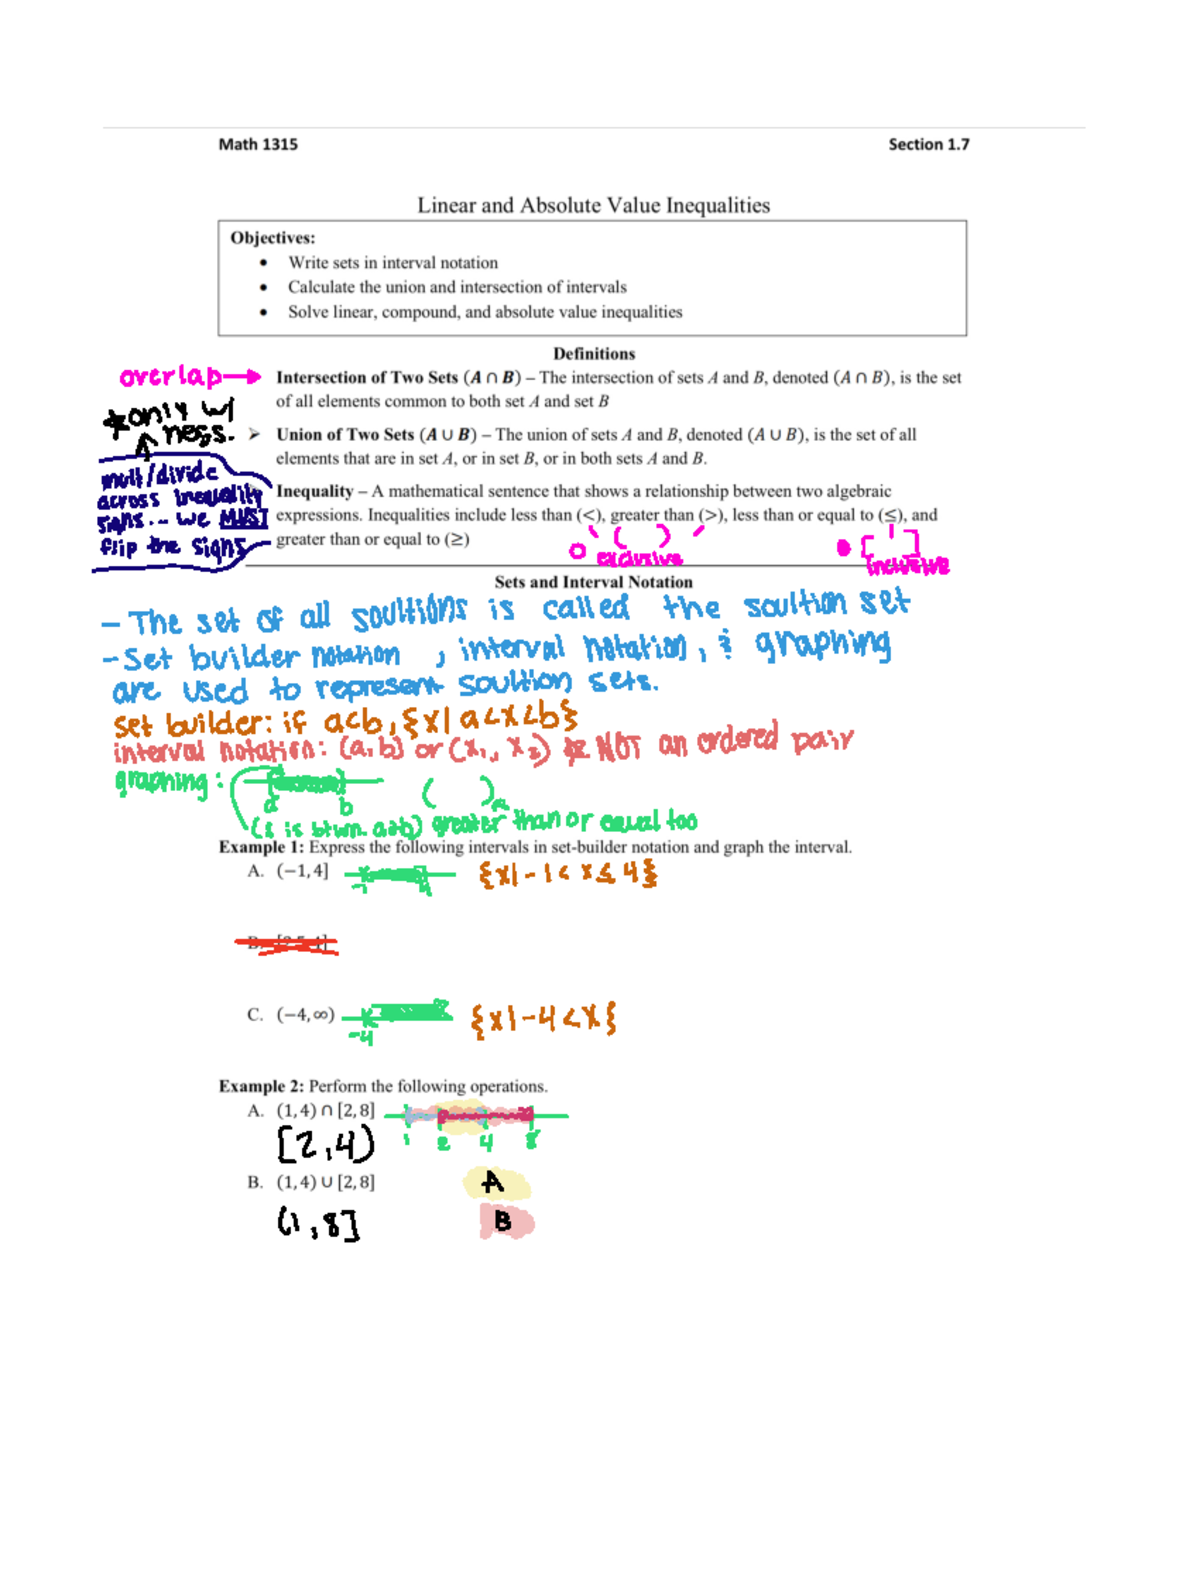 Math 1315 Section 1.7
Linear and Absolute Value Inequalities
Objectives:
• Write sets in interval notation
• Calculate the union and intersection of intervals
• Solve linear, compound, and absolute value inequalities
Definitions
overlap→ Intersection of Two Sets (A ∩ B) – The intersection of sets A and B, denoted (A ∩ B), is the set
of all elements common to both set A and set B
*only w/
ness.
➢ Union of Two Sets (A ∪ B) – The union of sets A and B, denoted (A ∪ B), is the set of all
elements that are in set A, or in set B, or in both sets A and B.
mult/divide
across inequality
signs... we MUST
flip the signs
Inequality – A mathematical sentence that shows a relationship between two algebraic
expressions. Inequalities include less than (<), greater than (>), less than or equal to (≤), and
greater than or equal to (≥)
( )
exclusive
[ ]
inclusive
Sets and Interval Notation
– The set of all soultions is called the soultion set
– Set builder notation , interval notation, & graphing
are used to represent soultion sets.
set builder: if a<b, {x| a<x<b}
interval notation: (a,b) or (x₁, x₂) * NOT an ordered pair
graphing:
a b ( )
(x is btwn. a&b) greater than or equal too
Example 1: Express the following intervals in set-builder notation and graph the interval.
A. (−1, 4] -1 4 {x| -1 < x ≤ 4}
C. (−4, ∞) -4 {x| -4 < x {
Example 2: Perform the following operations.
A. (1, 4) ∩ [2, 8]
1 2 4 8
[2,4)
B. (1, 4) ∪ [2, 8]
A
(1, 8]
B